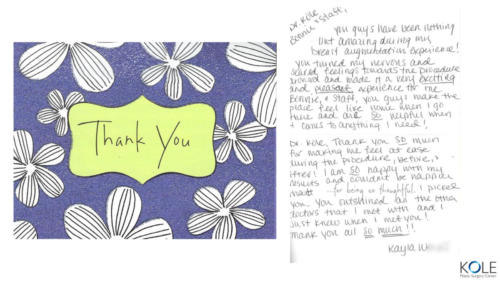 Thank You
Dr. Kole
Bonnie & staff,
You guys have been nothing
but amazing during my
breast augmentation experience!
You turned my nervous and
scared feelings towards the procedure
around and made it a very exciting
and pleasant experience for me
Bonnie, & staff, you guys make the
place feel like home when I go
there and are so helpful when
it comes to anything I need!
Dr. Kole, Thank you so much
for making me feel at ease
during the procedure, before, &
after! I am so happy with my
results and couldn't be happier
that
for being so thoughtful. I picked
you. You outshined all the other
doctors that I met with and I
just knew when I met you!
Thank you all so much!!
Kayla
KOLE
Plastic Surgery Center